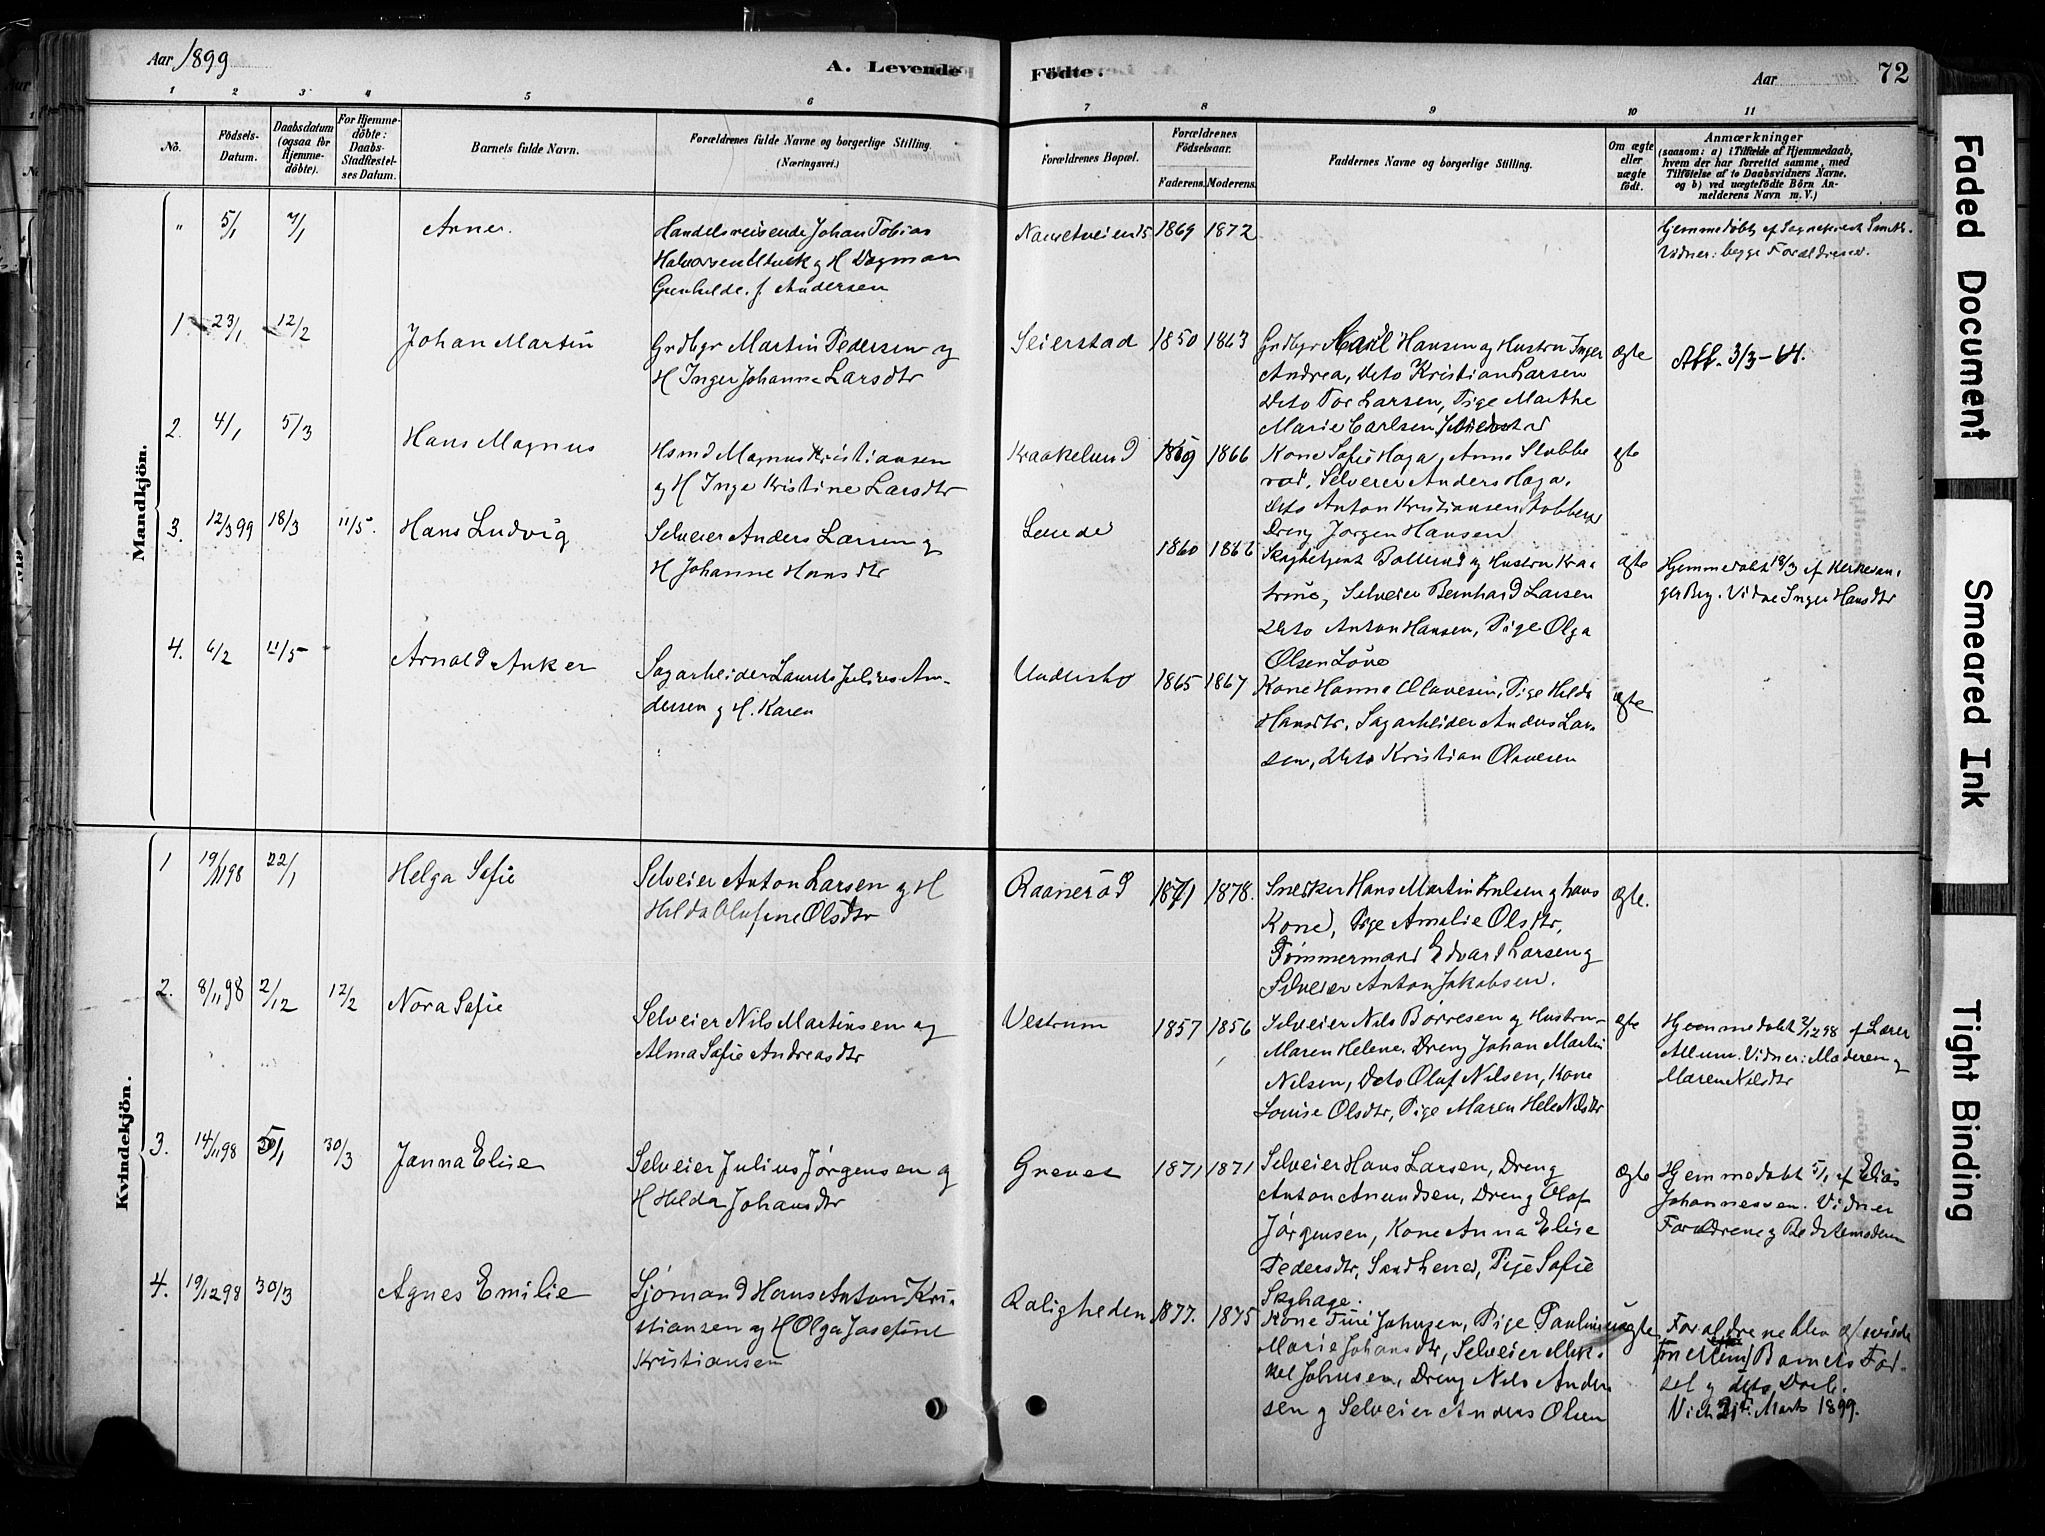 Aar 1899
A. Levende
Födte.
Aar
72
1 2 3 4 5 6 7 8 9 10 11
No.
Födsels-Datum.
Daabsdatum (ogsaa for Hjemmedöbte).
For Hjemmedöbte: Daabs-Stadfæstelses Datum.
Barnets fulde Navn.
Forældrenes fulde Navne og borgerlige Stilling.
(Næringsvei.)
Forældrenes Bopæl.
Forældrenes Födselsaar.
Faderens. Moderens.
Faddernes Navne og borgerlige Stilling.
Om ægte eller uægte födt.
Anmærkninger
(saasom: a) i Tilfælde af Hjemmedaab,
hvem der har forrettet samme, med
Tilföielse af to Daabsvidners Navne,
og b) ved uægtefödte Börn An-
melderens Navn m. V.)
Mandkjön.
" 5/1 7/1 Arne.
Handelsreisende Johan Tobias
Halvorsen og H Dagmar
Gunhilde. f Andersen
1869 1872
Hjemmedöbt af Sognepræst
Vidner: begge Forældrene.
1. 23/1 12/2 Johan Martin
Grdbgr Martin Pedersen og
H Inger Johanne Larsdtr
Seierstad 1850 1863
Grdbgr Karl Hansen og Hustru Inger
Andrea, Dito Kristian Larsen
Dito Tor Larsen, Pige Marthe
Marie Carlsen
ægte
Aff. 3/3-64.
2. 4/1 5/3 Hans Magnus
Hsmd Magnus Kristiansen
og H Inge Kristine Larsdtr
Kraakelund 1869 1866
Kone Sofie Haga, Anne Stubbe
rød, Selveier Anders Haga,
Dito Anton Kristiansen
Dreng Jørgen Hansen
ægte
3. 12/3 99 18/3 11/5. Hans Ludvig
Selveier Anders Larsen og
H Johanne Hansdtr
Lunde 1860 1866
og Hustru Kra-
trine, Selveier Bernhard Larsen
Dito Anton Hansen, Pige Olga
Olsen Löve
ægte
Hjemmedöbt 18/3 af Kirkesan-
ger Berg. Vidne Inger Hansdtr
4. 6/2 11/5 Arnold Anker
Sagarbeider Laurits Julius An-
dersen og H. Karen
Undersbo 1865 1867
Kone Hanna Olavesen, Pige Hilda
Hansdtr, Sagarbeider Anders Lar-
sen, Dito Kristian Olavesen
ægte
Kvindekjön.
1 19/11 98 22/1 Helga Sofie
Selveier Anton Larsen og H
Hilda Olufine Olsdtr
Raanerød 1871 1878.
Snedker Hans Martin og hans
Kone, Pige Amalie Olsdtr,
Tömmermand Edvard Larsen og
Selveier Anton Jakobsen.
ægte.
2. 8/11 98 2/12 12/2 Nora Sofie
Selveier Nils Martinsen og
Alma Sofie Andreasdtr
Vestrum 1857 1856
Selveier Nils Börresen og Hustru
Maren Helene, Dreng Johan Martin
Nilsen, Dito Olaf Nilsen, Kone
Louise Olsdtr, Pige Maren Hele Nilsdtr
ægte
Hjemmedöbt 2/12 98 af Lærer
Allum. Vidner: Moderen og
Maren Nilsdtr
3. 14/11 98 5/1 30/3 Janna Elise
Selveier Julius Jørgensen og
H Hilda Johansdtr
Greves 1871 1871
Selveier Hans Larsen, Dreng
Anton Amundsen, Dreng Olaf
Jørgensen, Kone Anna Elise
Pedersdtr, Pige Sofie
Skghage.
ægte
Hjemmedöbt 5/1 af Elias
Johannessen. Vidner
Forældrene og Bedstemoderen
4. 19/12 98 30/3 Agnes Emilie
Sjømand Hans Anton Kri-
stiansen og H Olga Josefine
Kristiansen
Roligheden 1877. 1875
Kone Johnsen, Pige Pauline
Marie Johansdtr, Selveier Mik-
kel Johnsen, Dreng Nils Ander
sen og Selveier Anders Olsen
uægte
Forældrene blev
mellem Barnets Föd-
sel og dets Daab.
21 Marts 1899.
Faded Document
Smeared Ink
Tight Binding